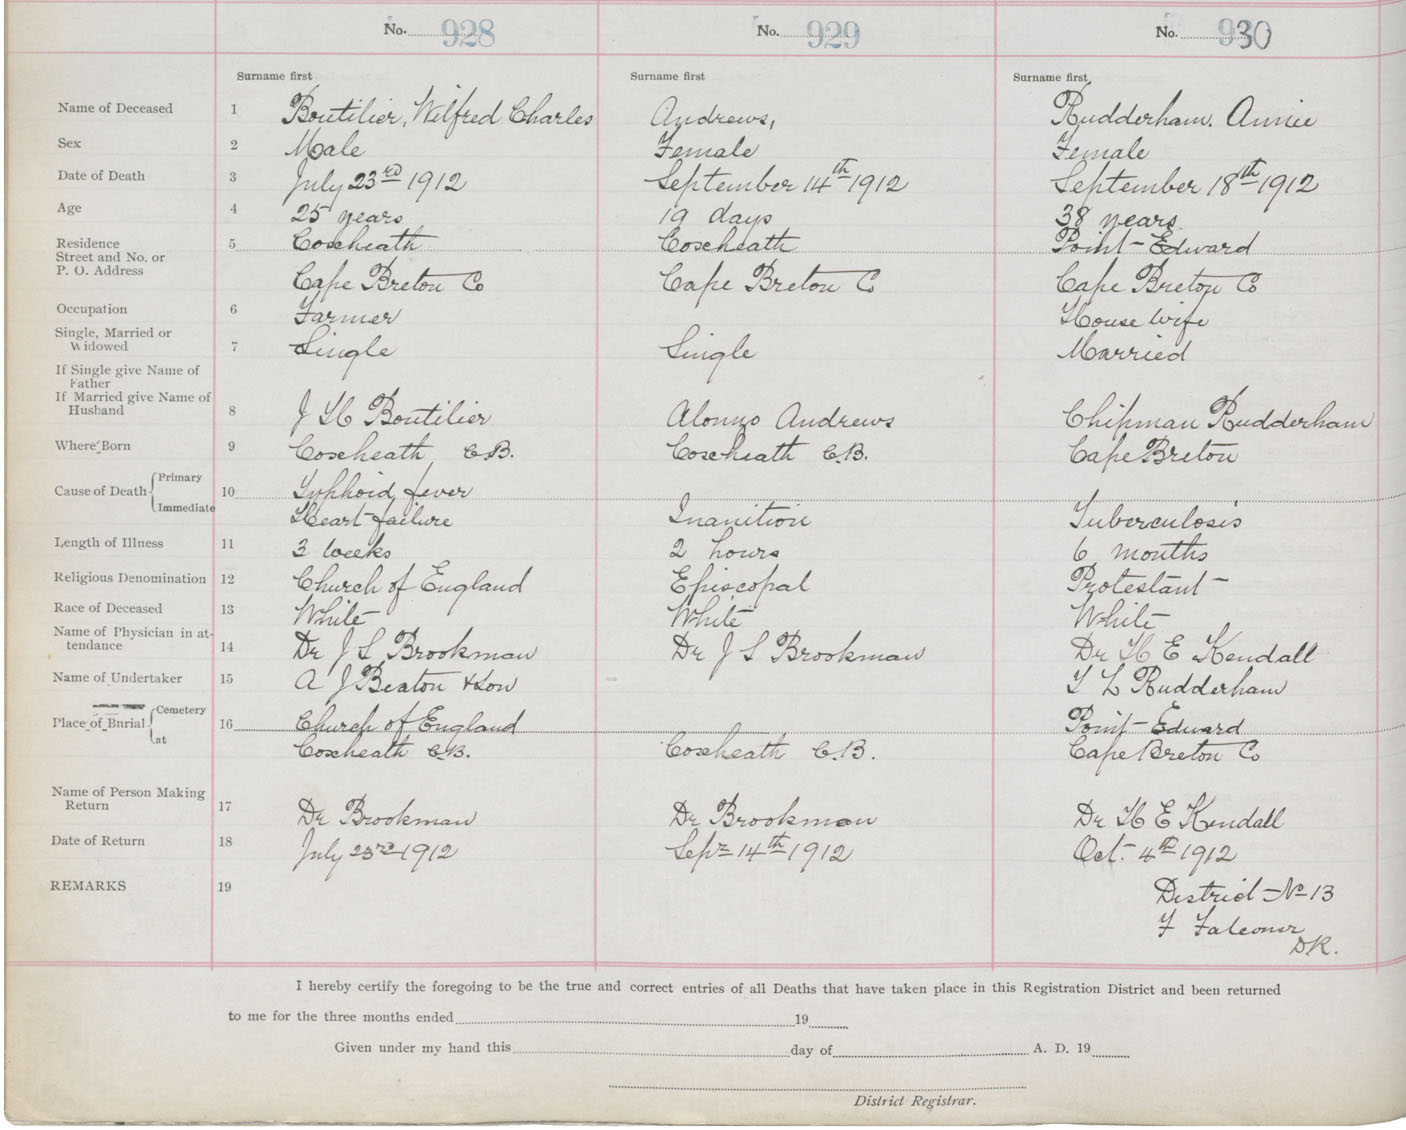 No. 928 No. 929 No. 930
Surname first Surname first Surname first
Name of Deceased 1 Boutilier, Wilfred Charles Andrews, Rudderham. Annie
Sex 2 Male Female Female
Date of Death 3 July 23rd 1912 September 14th 1912 September 18th 1912
Age 4 25 years 19 days 38 years
Residence 5 Coxheath Coxheath Point-Edward
Street and No. or
P. O. Address Cape Breton Co Cape Breton Co Cape Breton Co
Occupation 6 Farmer House Wife
Single, Married or
Widowed 7 Single Single Married
If Single give Name of
Father
If Married give Name of
Husband 8 J H Boutilier Alonzo Andrews Chipman Rudderham
Where Born 9 Coxheath C.B. Coxheath C.B. Cape Breton
Cause of Death Primary 10 Typhoid fever
Immediate Heart-failure Inanition Tuberculosis
Length of Illness 11 3 weeks 2 hours 6 months
Religious Denomination 12 Church of England Episcopal Protestant
Race of Deceased 13 White White White
Name of Physician in at-
tendance 14 Dr J S Brookman Dr J S Brookman Dr H E Kendall
Name of Undertaker 15 A J Beaton & Son T L Rudderham
Place of Burial Cemetery 16 Church of England Point-Edward
at Coxheath C.B. Coxheath C.B. Cape Breton Co
Name of Person Making
Return 17 Dr Brookman Dr Brookman Dr H E Kendall
Date of Return 18 July 23rd 1912 Sepr 14th 1912 Oct. 4th 1912
REMARKS 19 District-No 13
F Falconer
D.R.
I hereby certify the foregoing to be the true and correct entries of all Deaths that have taken place in this Registration District and been returned
to me for the three months ended 19
Given under my hand this day of A. D. 19
District Registrar.